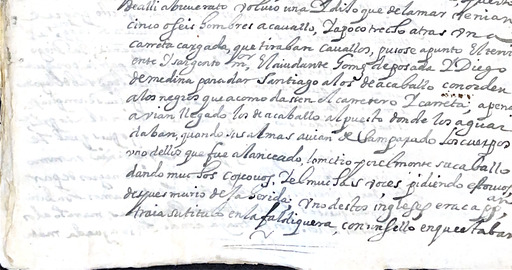 de alli a buen rato voluio una y dixo que de la mar venian
cinco o seis hombres a cauallo, y a poco trecho atras una
carreta cargada, que tirauan cauallos, pusose a punto el teni
ente y sargento mor, el aiudante Tome de posada y Diego
de medina para dar Santiago a los de a cauallo con orden
a los negros que acomodassen el carretero y carreta; apenas
avian llegado los de a cauallo al puesto donde los aguar
daban, quando sus almas auian desamparado los cuerpos
uno dellos que fue alanceado, lo metio por el monte su cauallo
dando muchos corcouos, y el muchas voces pidiendo
despues murio de la herida; uno destos ingleses era ca
traia su titulo en la faldiquera, con un sello en que estaban